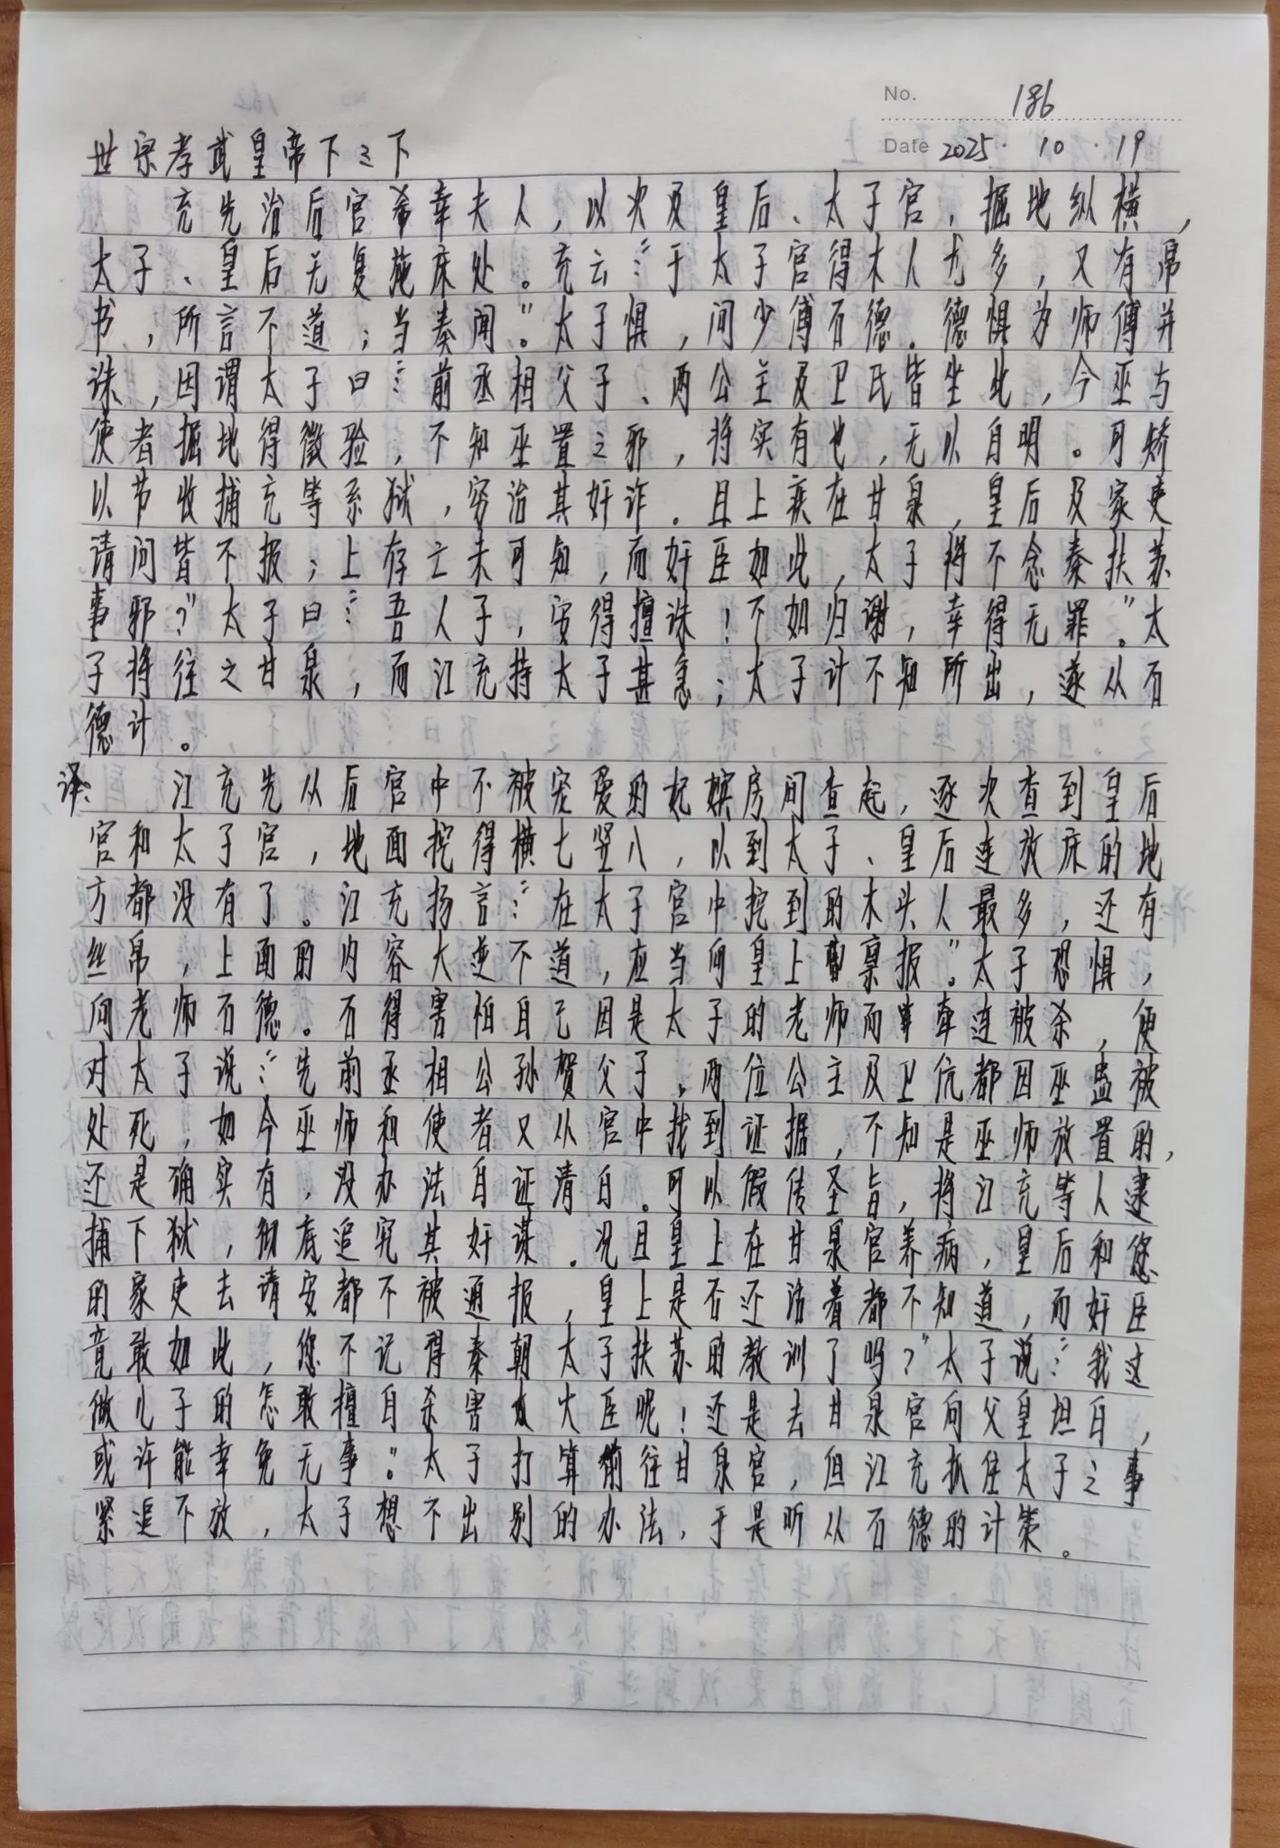 No. 186
世宗孝武皇帝下之下
Date 2025 · 10 · 19
充先治后宫希幸夫人，以次及皇后、太子宫，掘地纵横，
太子、皇后无复施床处。充云：“于太子宫得木人尤多，又有帛
书，所言不道；当奏闻。”太子惧，问少傅石德。德惧为师傅并
诛，因谓太子曰：“前丞相父子、两公主及卫氏皆坐此，今巫与
使者掘地得徵验，不知巫置之邪，将实有也，无以自明。可矫
以节收捕充等系狱，穷治其奸诈。且上疾在甘泉，皇后及家吏
请问皆不报；上存亡未可知，而奸臣如此，太子将不念秦扶苏
事邪？”太子曰：“吾人子，安得擅诛！不如归谢，幸得无罪。”太
子将往之甘泉，而江充持太子甚急；太子计不知所出，遂从石
德计。
译： 江充先从后宫中不被宠爱的妃嫔房间查起，逐次查到皇后
宫和太子宫，地面挖得横七竖八，以到太子、皇后连放床的地
方都没有了。江充扬言：“在太子宫中挖到的木头人最多，还有
丝帛，上面的内容大逆不道，应当向皇上禀报。”太子恐惧，
问老师石德。石得害怕自己因是太子的老师而牵连被杀，便
对太子说：“先前丞相公孙贺父子、两位公主及卫伉都因巫蛊被
处死，如今巫师和使者又从宫中找到证据，不知是巫师放置的，
还是确实有，没办法自证清白。可以假传圣旨，将江充等人逮
捕下狱，彻底追究其奸谋。况且皇上在甘泉宫养病，皇后和您
的家吏去请安都不被通报，皇上是否还活着都不知道，而奸臣
竟敢如此，您不记得秦朝太子扶苏的教训了吗？”太子说：“我这
做儿子的怎敢擅自杀害大臣呢！还是去甘泉宫向父皇坦白，
或许能幸免无事。”太子打算前往甘泉宫，但江充抓住太子之事
紧追不放，太子想不出别的办法，于是听从石德的计策。